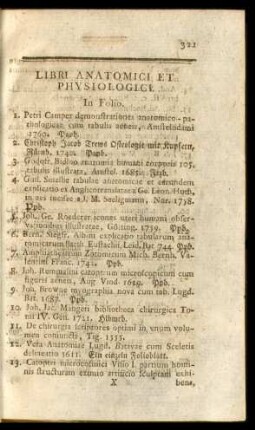 321
LIBRI ANATOMICI ET
PHYSIOLOGICI.
In Folio.
1. Petri Camper demonstrationes anatomico-pa-
thologicae, cum tabulis aeneis, Amstelodami
1760. Ppb.
2. Christoph Jacob Trews Osteologie mit Kupfern,
Nürnb. 1740. Ppb.
3. Godofr. Bidloo anatomia humani corporis 105.
tabulis illustrata, Amstel. 1685.
4. Guil. Smellie tabulae anatomicae et earundem
explicatio ex Anglico translatore Ge. Leon. Huth,
in aes incisae a J. M. Seeligmann, Nor. 1758.
Ppb.
5. Joh. Ge. Roederer icones uteri humani obser-
vationibus illustratae, Götting. 1759. Ppb.
6. Bern. Siegfr. Albini explicatio tabularum ana-
tomicarum Barth. Eustachii, Leid. Bat 744. Ppb.
7. Amphitheatrum Zootomicum Mich. Bernh. Va-
lentini Franc. 1742. Ppb.
8. Joh. Rummelini catoptrum microcosmicum cum
figuris aeneis, Aug Vind. 1619. Ppb.
9. Joh. Browne myographia nova cum tab. Lugd.
Bat. 1687. Ppb.
10. Joh. Jac. Mangeti bibliotheca chirurgica To-
mi IV. Gen. 1721.
11. De chirurgia scriptores optimi in unum volu-
men coniuncti, Tig. 1555.
12. Vera Anatomiae Lugd. Batavae cum Sceletis
delineatio 1611. Ein einzeln Folioblatt.
13. Catoptri microcosmici Visio I. partium homi-
nis structuram eximio artificio sculptam exhi-
X bens,